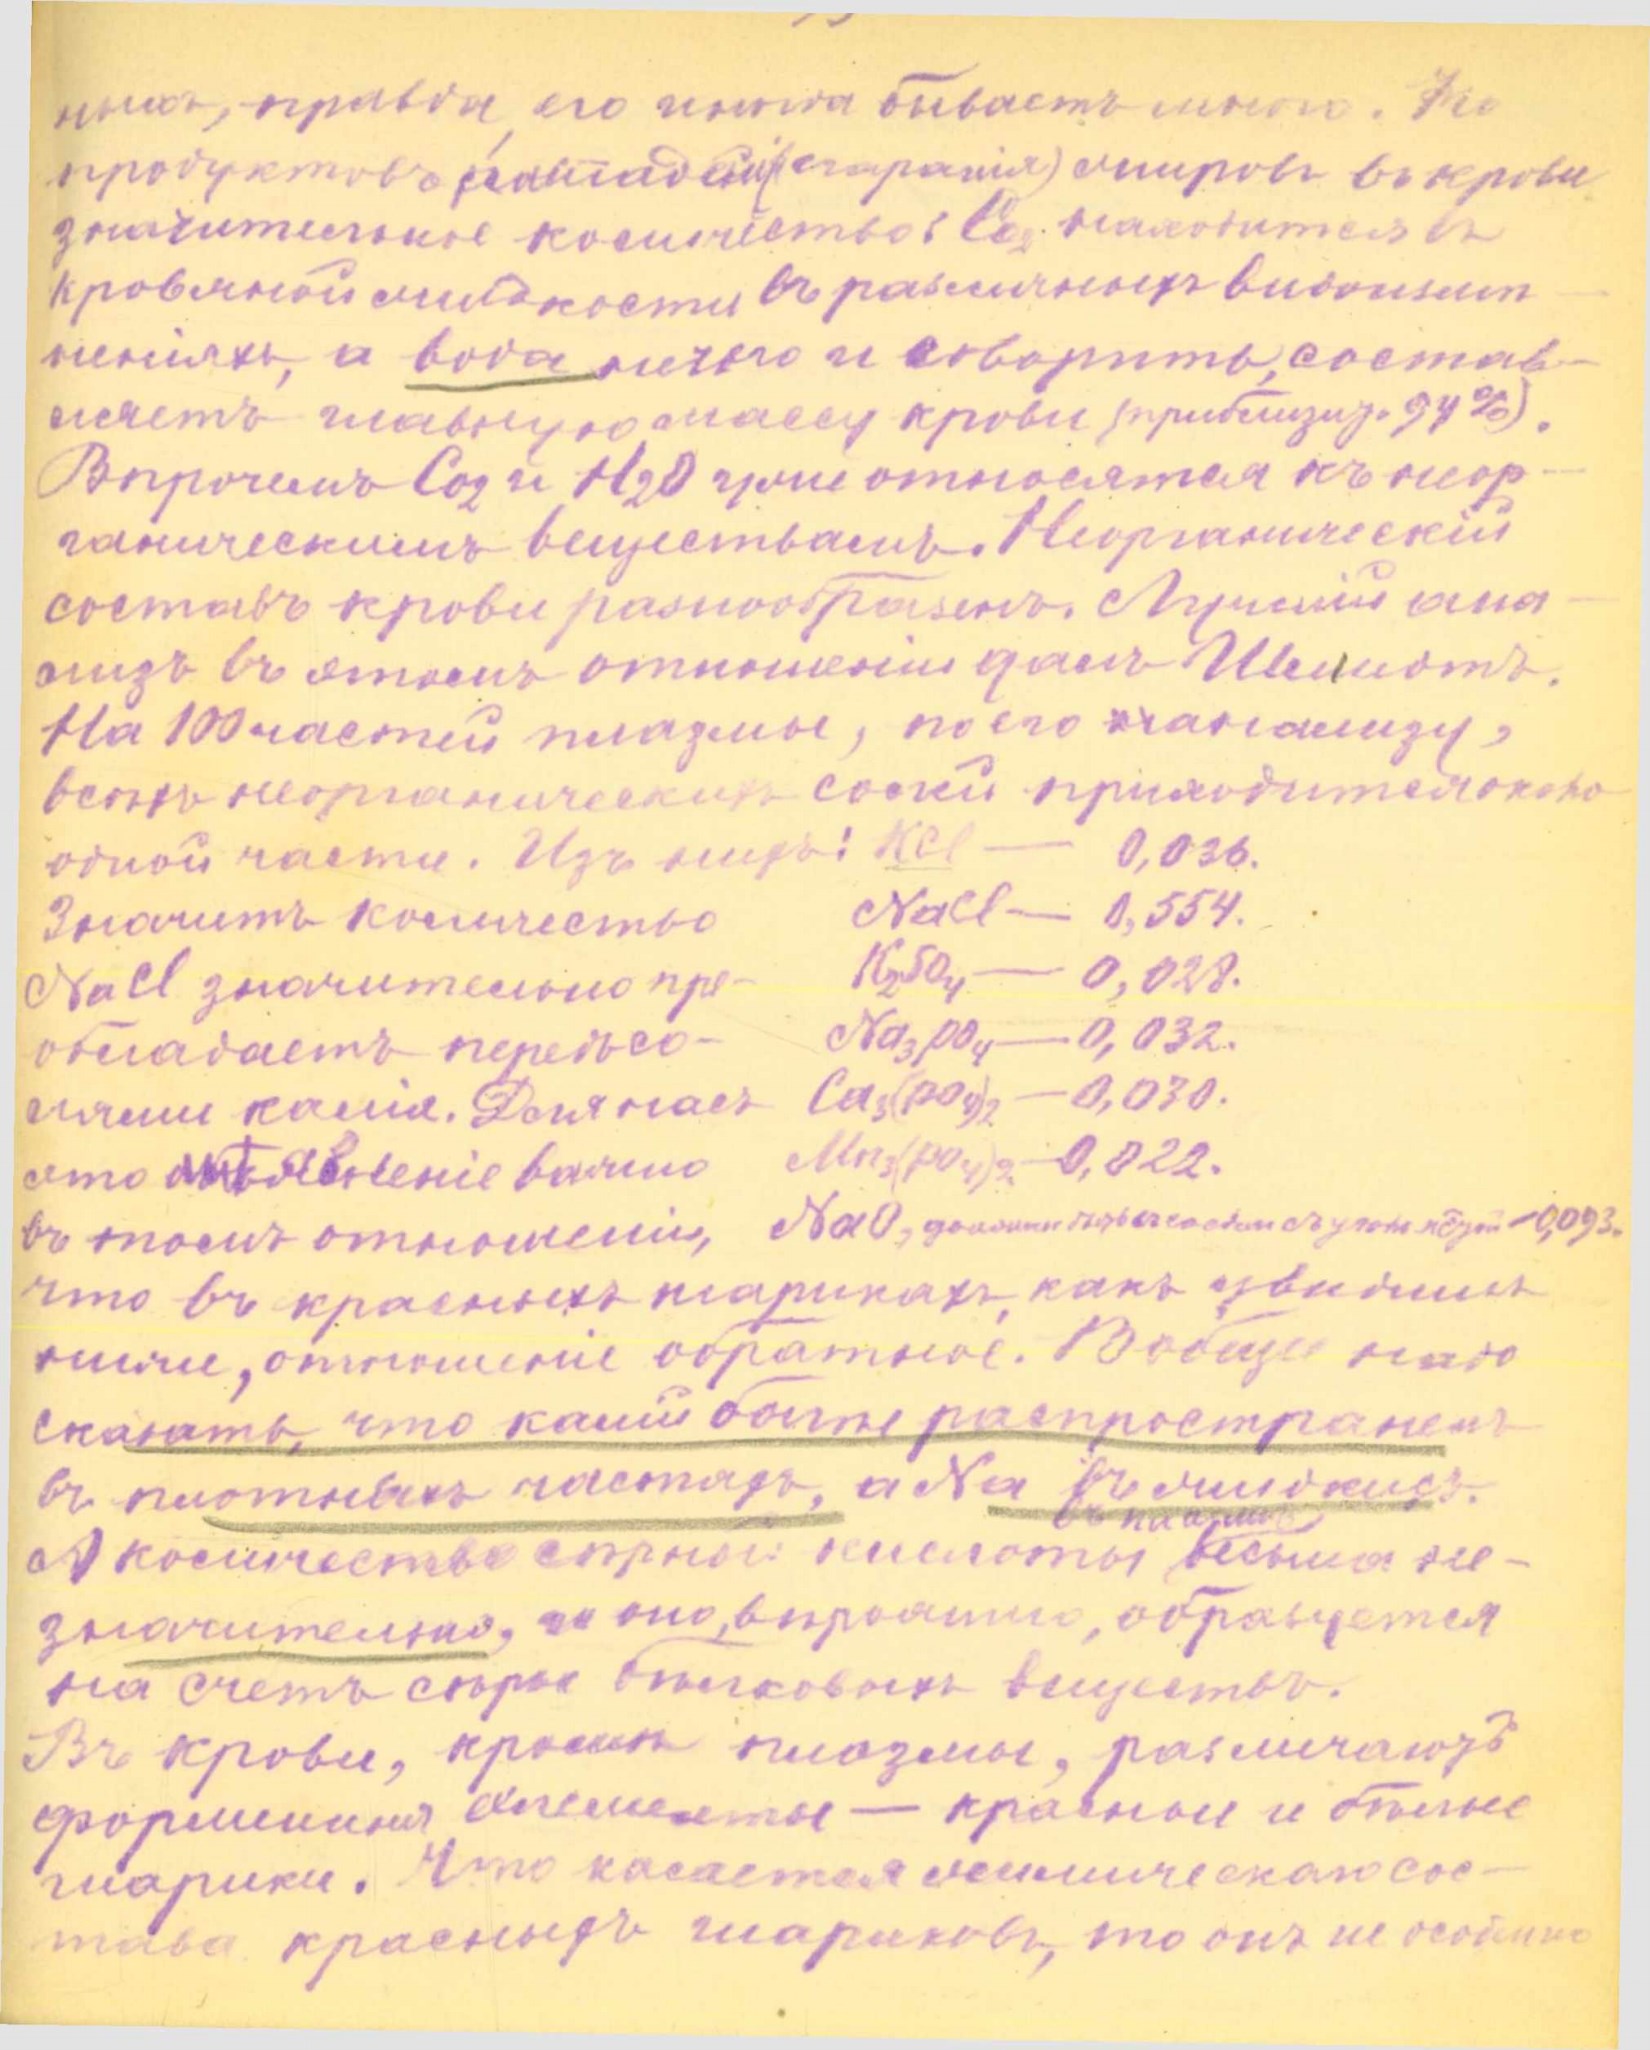 ныхъ, правда, его иногда бываетъ много. Но
продуктовъ распаденія (сгаранія) жировъ въ крови
значительное количество: Co2 находится въ
кровяной жидкости въ различныхъ видоизмѣ-
неніяхъ, а вода, нечего и говорить, состав-
ляетъ главную массу крови (приблизит. 94%).
Впрочемъ Co2 и H2O уже относятся къ неор-
ганическимъ веществамъ. Неорганическій
составъ крови разнообразенъ. Лучшій ана-
лизъ въ этомъ отношеніи далъ Шмидтъ.
На 100 частей плазмы, по его анализу,
всѣхъ неорганическихъ солей приходится около
одной части. Изъ нихъ: KCl — 0,036.
Значитъ количество NaCl — 0,554.
NaCl значительно пре- K2SO4 — 0,028.
обладаетъ передъ со- Na3PO4 — 0,032.
лями калія. Для насъ Ca3(PO4)2 — 0,030.
это явленіе важно Mn3(PO4)2 — 0,022.
въ томъ отношеніи, NaO, — 0,093.
что въ красныхъ шарикахъ, какъ увидимъ
ниже, отношеніе обратное. Вообще надо
сказать, что калій болѣе распространенъ
въ плотныхъ частяхъ, а Na въ жидкихъ.
въ плазмѣ
А количество сѣрной кислоты весьма не-
значительно, и оно, вѣроятно, образуется
на счетъ сѣры бѣлковыхъ веществъ.
Въ крови, кромѣ плазмы, различаютъ
форменныя элементы — красные и бѣлые
шарики. Что касается химическаго сос-
тава красныхъ шариковъ, то онъ не особенно